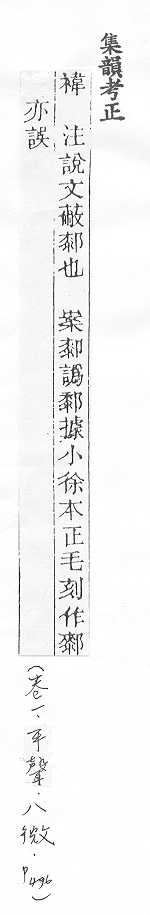 集韻考正
褘 注說文蔽也 案譌據小徐本正毛刻作
亦誤
(卷一．平聲．八微．P496)